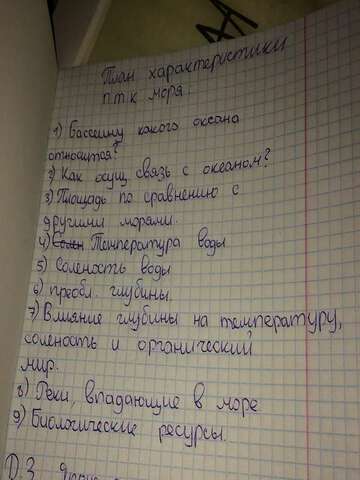 План характеристики
п.т.к моря.
1) Бассейну какого океана
относится?
2) Как осущ связь с океаном?
3) Площадь по сравнению с
другими морями.
4) Температура воды
5) Соленость воды
6) преобл. глубины.
7) Влияние глубины на температуру,
соленость и органический
мир.
8) Реки, впадающие в море
9) Биологические ресурсы.
Д.З